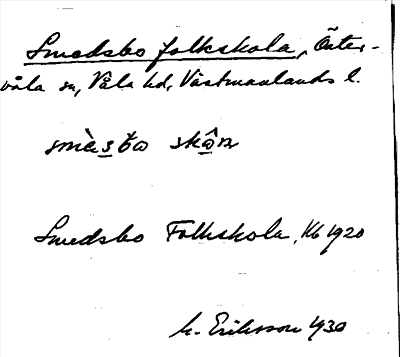 Smedsbo folkskola, Öster-
våla sn, Våla hd, Västmanlands l.
smὲsbo skôn
Smedsbo Folkskola, Kb 1920
M. Eriksson 1930